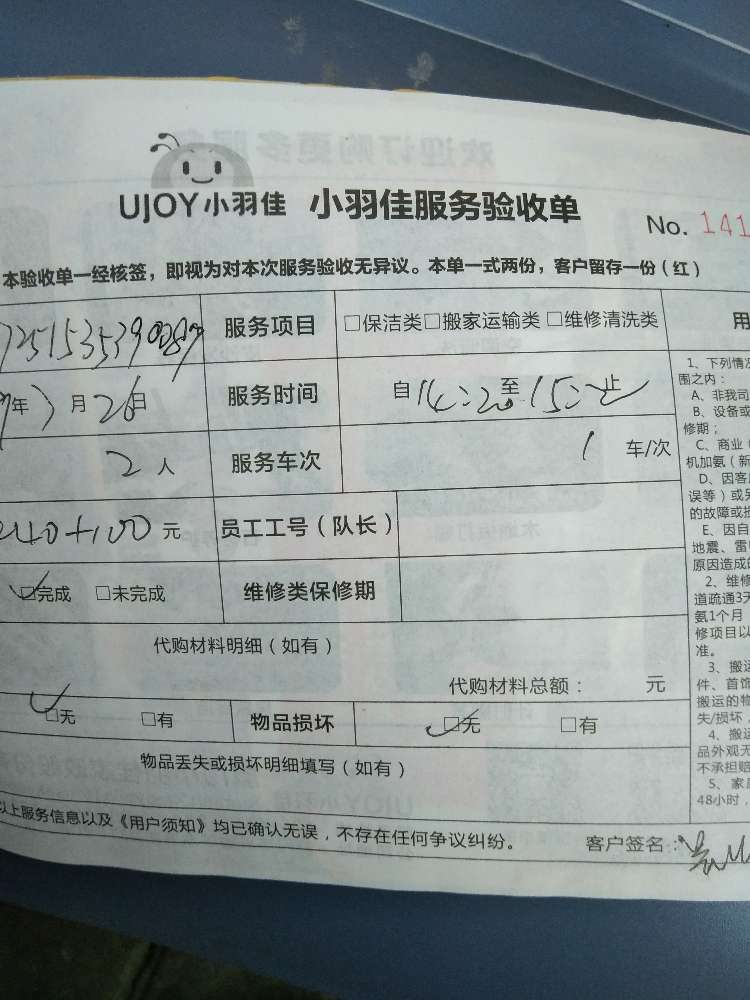 UJOY小羽佳 小羽佳服务验收单
No. 141
本验收单一经核签，即视为对本次服务验收无异议。本单一式两份，客户留存一份（红）
服务项目 □保洁类□搬家运输类□维修清洗类 用
年 月 26日 服务时间 自14:20至15: 止
2人 服务车次 1 车/次
240+100元 员工工号（队长）
□完成 □未完成 维修类保修期
代购材料明细（如有）
代购材料总额： 元
□无 □有 物品损坏 □无 □有
物品丢失或损坏明细填写（如有）
以上服务信息以及《用户须知》均已确认无误，不存在任何争议纠纷。 客户签名：
1、下列情况
围之内：
A、非我司
B、设备或
修期；
C、商业
机加氨（新
D、因客
误等）或
的故障或损
E、因自
地震、雷
原因造成的
2、维修
道疏通3天
氨1个月
修项目以
准。
3、搬运
件、首饰
搬运的物
失/损坏，
4、搬运
品外观无
不承担赔
5、家
48小时，